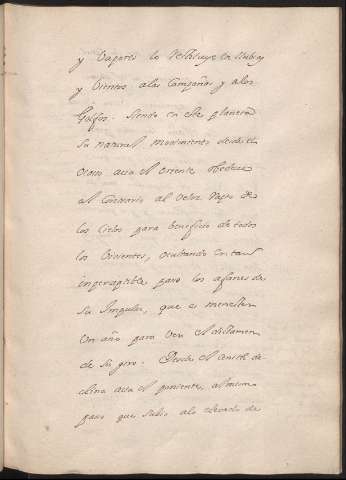 y Vapores lo restituye en Nubes
y Vientos a las Campañas y a los
Golfos. Siendo en este planeta
su natural movimiento desde el
Ocaso acia el oriente obedece
al Contrario al veloz rapto de
los Cielos para beneficio de todos
los Vivientes, ocultando con tan
imperceptible paso los afanes de
su que es menester
Un año para ver el
de su giro. Desde el cenith de
clina acia el poniente, al mismo
paso que subio a lo elevado de